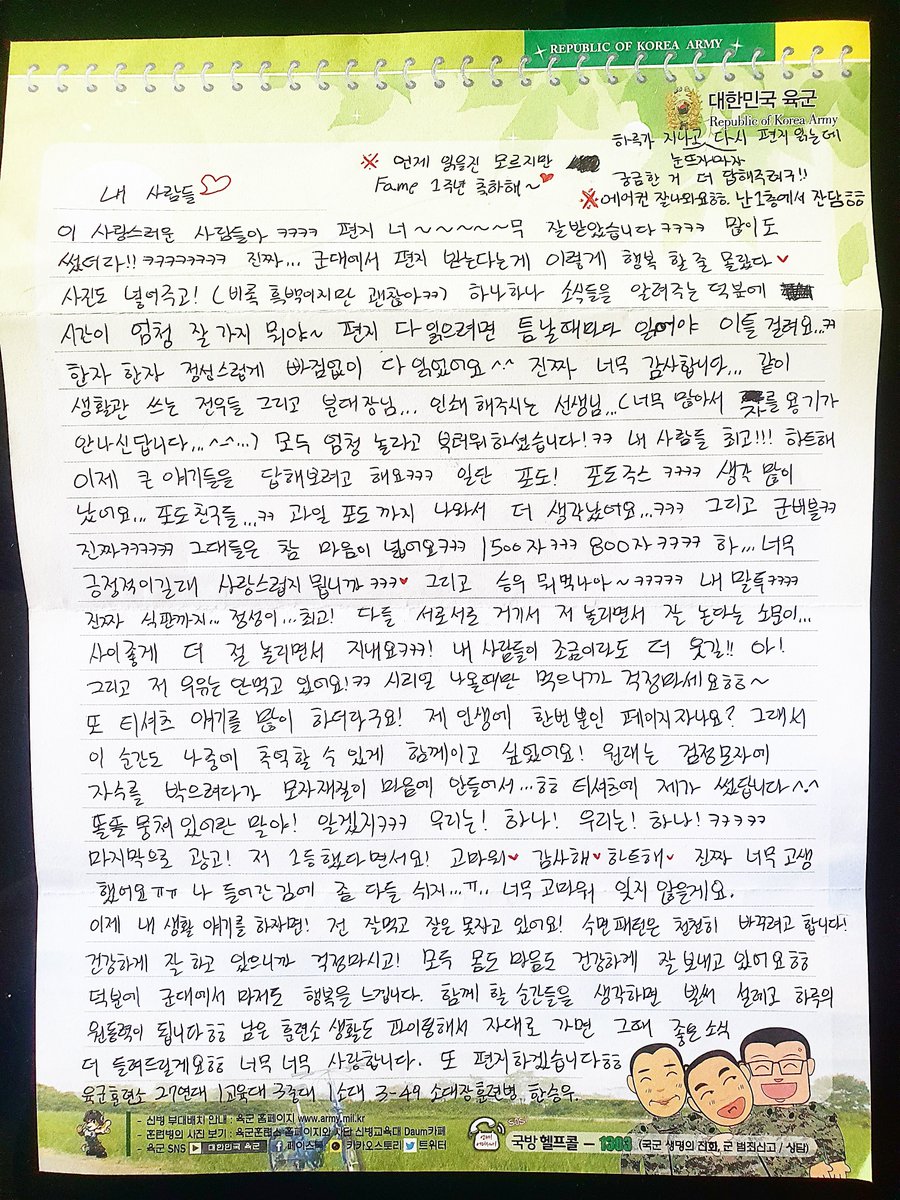 REPUBLIC OF KOREA ARMY
대한민국 육군
Republic of Korea Army
하루가 지나고 다시 편지 읽는데
눈뜨자마자
궁금한 거 더 답해주려구!!
※ 에어컨 잘나와요ㅎㅎ. 난 1층에서 잔답ㅎㅎ
※ 언제 읽을진 모르지만
Fame 1주년 축하해~♥
내 사람들♡
이 사랑스러운 사람들아 ㅋㅋㅋㅋ 편지 너~~~~~무 잘받았습니다ㅋㅋㅋㅋ 많이도
썼더라!! ㅋㅋㅋㅋㅋㅋㅋㅋ 진짜... 군대에서 편지 받는다는게 이렇게 행복 할 줄 몰랐다♥
사진도 넣어주고! (비록 흑백이지만 괜찮아ㅋㅋ) 하나하나 소식들을 알려주는 덕분에
시간이 엄청 잘 가지 뭐야~ 편지 다 읽으려면 틈날때마다 읽어야 이틀 걸려요..ㅋ
한자 한장 정성스럽게 빠짐없이 다 읽었어요^^ 진짜 너무 감사합니다... 같이
생활관 쓰는 전우들 그리고 분대장님... 인쇄 해주시는 선생님...(너무 많아서 자를 용기가
안나신답니다...^-^...) 모두 엄청 놀라고 부러워하셨습니다!ㅋㅋ 내 사람들 최고!!! 하트해
이제 큰 얘기들을 답해보려고 해요ㅋㅋㅋ 일단 포도! 포도쥬스 ㅋㅋㅋㅋ 생각 많이
났어요... 포도친국들...ㅋㅋ 과일 포도까지 나와서 더 생각났어요...ㅋㅋㅋ 그리고 군버블ㅋㅋ
진짜ㅋㅋㅋㅋㅋ 그대들은 참 마음이 넓어요ㅋㅋㅋ 1500자ㅋㅋㅋ 800자ㅋㅋㅋㅋ 하... 너무
긍정적이길래 사랑스럽지 뭡니까 ㅋㅋㅋ♥ 그리고 승우 뭐먹나아~ㅋㅋㅋㅋㅋ 내 말투ㅋㅋㅋㅋ
진짜 식판까지... 정성이...최고! 다들 서로서로 거기서 저 놀리면서 잘 논다는 소문이...
사이좋게 더 절 놀리면서 지내요ㅋㅋㅋ! 내 사람들이 조금이라도 더 웃길!! 아!
그리고 저 우유는 안먹고 있어요!ㅋㅋ 시리얼 나올때만 먹으니까 걱정마세요ㅎㅎ~
또 티셔츠 얘기를 많이 하더라구요! 제 인생에 한번뿐인 페이지자나요? 그래서
이 순간도 나중에 추억할 수 있게 함께이고 싶었어요! 원래는 검정모자에
자수를 박으려다가 모자재질이 마음에 안들어서...ㅎㅎ 티셔츠에 제가 썼답니다^.^
똘똘 뭉쳐 있어란 말야! 알겠지ㅋㅋㅋ 우리는! 하나! 우리는! 하나! ㅋㅋㅋㅋㅋ
마지막으로 광고! 저 1등했다면서요! 고마워♥ 감사해♥하트해♥ 진짜 너무 고생
했어요ㅠㅠ 나 들어간김에 좀 다들 쉬지...ㅠ.. 너무 고마워 잊지 않을게요.
이제 내 생활 얘기를 하자면! 전 잘먹고 잘은 못자고 있어요! 수면패턴은 천천히 바꾸려고 합니다!
건강하게 잘 하고 있으니까 걱정마시고! 모두 몸도 마음도 건강하게 잘 보내고 있어요ㅎㅎ
덕분에 군대에서 마저도 행복을 느낍니다. 함께 할 순간들을 생각하면 벌써 설레고 하루의
원동력이 됩니다ㅎㅎ 남은 훈련소 생활도 파이팅해서 자대로 가면 그때 좋은 소식
더 들려드릴게요ㅎㅎ 너무 너무 사랑합니다. 또 편지하겠습니다ㅎㅎ
육군훈련소 27연대 1교육대 3중대 1소대 3-49 소대장훈련병 한승우.
- 신병 부대배치 안내 : 육군 홈페이지 www.army.mil.kr
- 훈련병의 사진 보기 : 육군훈련소 홈페이지와 사단 신병교육대 Daum카페
- 육군 SNS ▶ 대한민국 육군 f 페이스북 카카오스토리 트위터
SOS
국방 헬프콜 - 1303 (국군 생명의 전화, 군 범죄신고 / 상담)